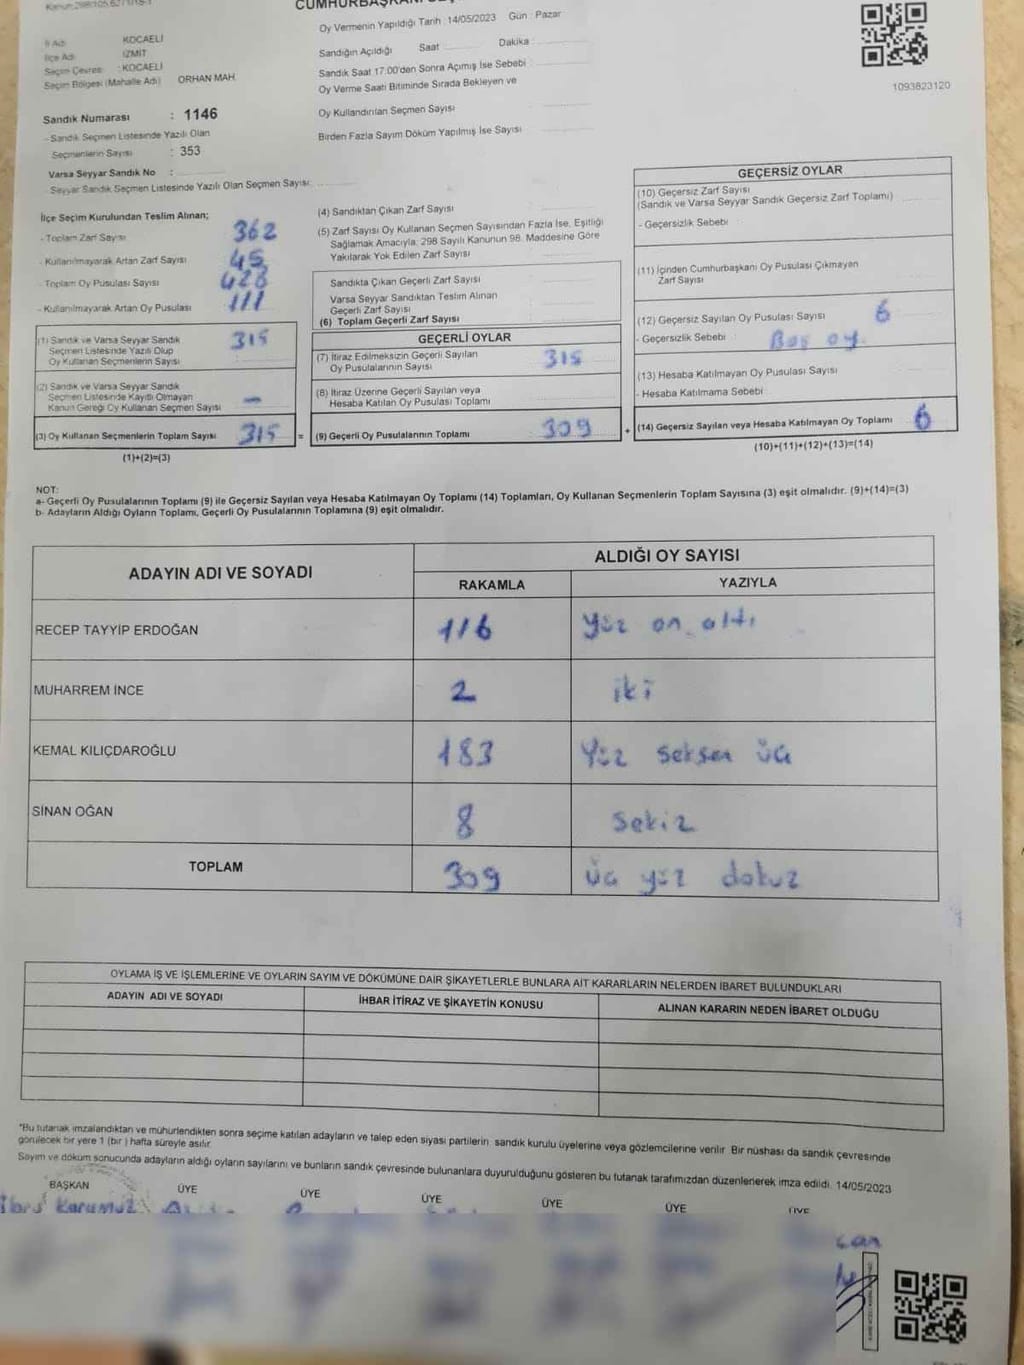 Oy Vermenin Yapıldığı Tarih : 14/05/2023 Gün : Pazar
İl Adı : KOCAELİ
İlçe Adı : İZMİT
Seçim Çevresi : KOCAELİ
Seçim Bölgesi (Mahalle Adı) ORHAN MAH.
Sandığın Açıldığı Saat Dakika :
Sandık Saat 17:00'den Sonra Açımış İse Sebebi :
Oy Verme Saati Bitiminde Sırada Bekleyen ve
Oy Kullandırılan Seçmen Sayısı
Birden Fazla Sayım Döküm Yapılmış İse Sayısı
1093823120
Sandık Numarası : 1146
- Sandık Seçmen Listesinde Yazılı Olan
Seçmenlerin Sayısı : 353
Varsa Seyyar Sandık No :
- Seyyar Sandık Seçmen Listesinde Yazılı Olan Seçmen Sayısı:
İlçe Seçim Kurulundan Teslim Alınan;
- Toplam Zarf Sayısı 362
- Kullanılmayarak Artan Zarf Sayısı 45
- Toplam Oy Pusulası Sayısı 428
- Kullanılmayarak Artan Oy Pusulası 111
(1) Sandık ve Varsa Seyyar Sandık
Seçmen Listesinde Yazılı Olup
Oy Kullanan Seçmenlerin Sayısı 315
(2) Sandık ve Varsa Seyyar Sandık
Seçmen Listesinde Kayıtlı Olmayan
Kanun Gereği Oy Kullanan Seçmen Sayısı –
(3) Oy Kullanan Seçmenlerin Toplam Sayısı 315 =
(1)+(2)=(3)
(4) Sandıktan Çıkan Zarf Sayısı
(5) Zarf Sayısı Oy Kullanan Seçmen Sayısından Fazla İse, Eşitliği
Sağlamak Amacıyla; 298 Sayılı Kanunun 98. Maddesine Göre
Yakılarak Yok Edilen Zarf Sayısı
Sandıkta Çıkan Geçerli Zarf Sayısı
Varsa Seyyar Sandıktan Teslim Alınan
Geçerli Zarf Sayısı
(6) Toplam Geçerli Zarf Sayısı
GEÇERLİ OYLAR
(7) İtiraz Edilmeksizin Geçerli Sayılan
Oy Pusulalarının Sayısı 315
(8) İtiraz Üzerine Geçerli Sayılan veya
Hesaba Katılan Oy Pusulası Toplamı
(9) Geçerli Oy Pusulalarının Toplamı 309 +
GEÇERSİZ OYLAR
(10) Geçersiz Zarf Sayısı
(Sandık ve Varsa Seyyar Sandık Geçersiz Zarf Toplamı)
- Geçersizlik Sebebi
(11) İçinden Cumhurbaşkanı Oy Pusulası Çıkmayan
Zarf Sayısı
(12) Geçersiz Sayılan Oy Pusulası Sayısı 6
- Geçersizlik Sebebi : Boş oy.
(13) Hesaba Katılmayan Oy Pusulası Sayısı
- Hesaba Katılmama Sebebi
(14) Geçersiz Sayılan veya Hesaba Katılmayan Oy Toplamı 6
(10)+(11)+(12)+(13)=(14)
NOT:
a- Geçerli Oy Pusulalarının Toplamı (9) ile Geçersiz Sayılan veya Hesaba Katılmayan Oy Toplamı (14) Toplamları, Oy Kullanan Seçmenlerin Toplam Sayısına (3) eşit olmalıdır. (9)+(14)=(3)
b- Adayların Aldığı Oyların Toplamı, Geçerli Oy Pusulalarının Toplamına (9) eşit olmalıdır.
ADAYIN ADI VE SOYADI ALDIĞI OY SAYISI
RAKAMLA YAZIYLA
RECEP TAYYİP ERDOĞAN 116 Yüz on altı
MUHARREM İNCE 2 iki
KEMAL KILIÇDAROĞLU 183 Yüz seksen üç
SİNAN OĞAN 8 sekiz
TOPLAM 309 üç yüz dokuz
OYLAMA İŞ VE İŞLEMLERİNE VE OYLARIN SAYIM VE DÖKÜMÜNE DAİR ŞİKAYETLERLE BUNLARA AİT KARARLARIN NELERDEN İBARET BULUNDUKLARI
ADAYIN ADI VE SOYADI İHBAR İTİRAZ VE ŞİKAYETİN KONUSU ALINAN KARARIN NEDEN İBARET OLDUĞU
*Bu tutanak imzalandıktan ve mühürlendikten sonra seçime katılan adayların ve talep eden siyasi partilerin sandık kurulu üyelerine veya gözlemcilerine verilir. Bir nüshası da sandık çevresinde
görülecek bir yere 1 (bir ) hafta süreyle asılır.
Sayım ve döküm sonucunda adayların aldığı oyların sayılarını ve bunların sandık çevresinde bulunanlara duyurulduğunu gösteren bu tutanak tarafımızdan düzenlenerek imza edildi. 14/05/2023
BAŞKAN ÜYE ÜYE ÜYE ÜYE ÜYE ÜYE